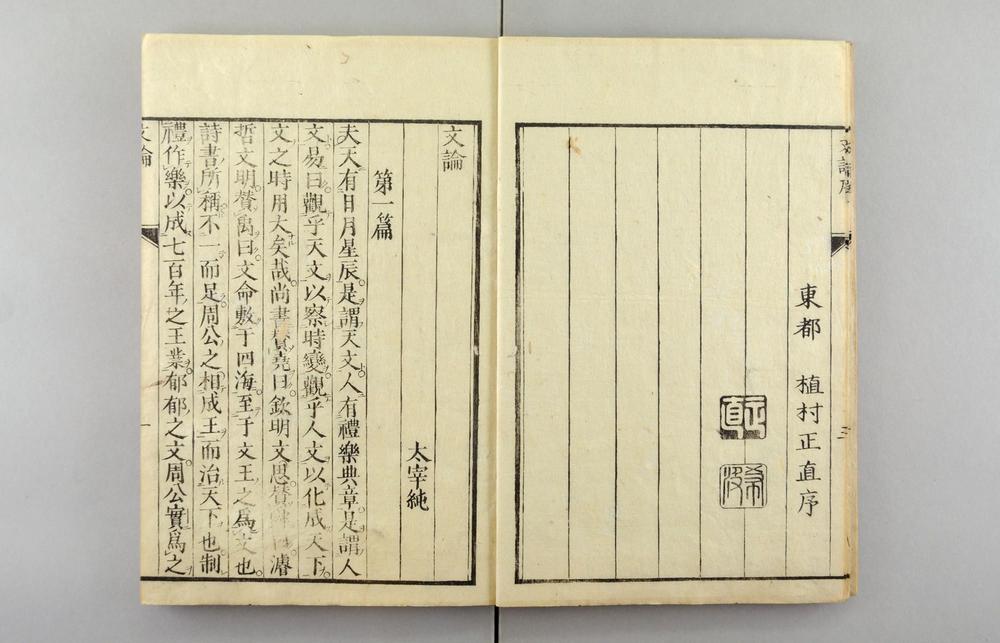 文論序
三
東都 植村正直序
正直
文論
太宰純
第一篇
夫天有日月星辰是謂天文人有禮樂典章是謂人
文易曰觀乎天文以察時變觀乎人文以化成天下
文之時用大矣哉尚書贊堯曰欽明文思贊舜曰濬
哲文明贊禹曰文命敷于四海至于文王之爲文也
詩書所稱不一而足周公之相成王而治天下也制
禮作樂以成七百年之王業郁郁之文周公實爲之
文論
一